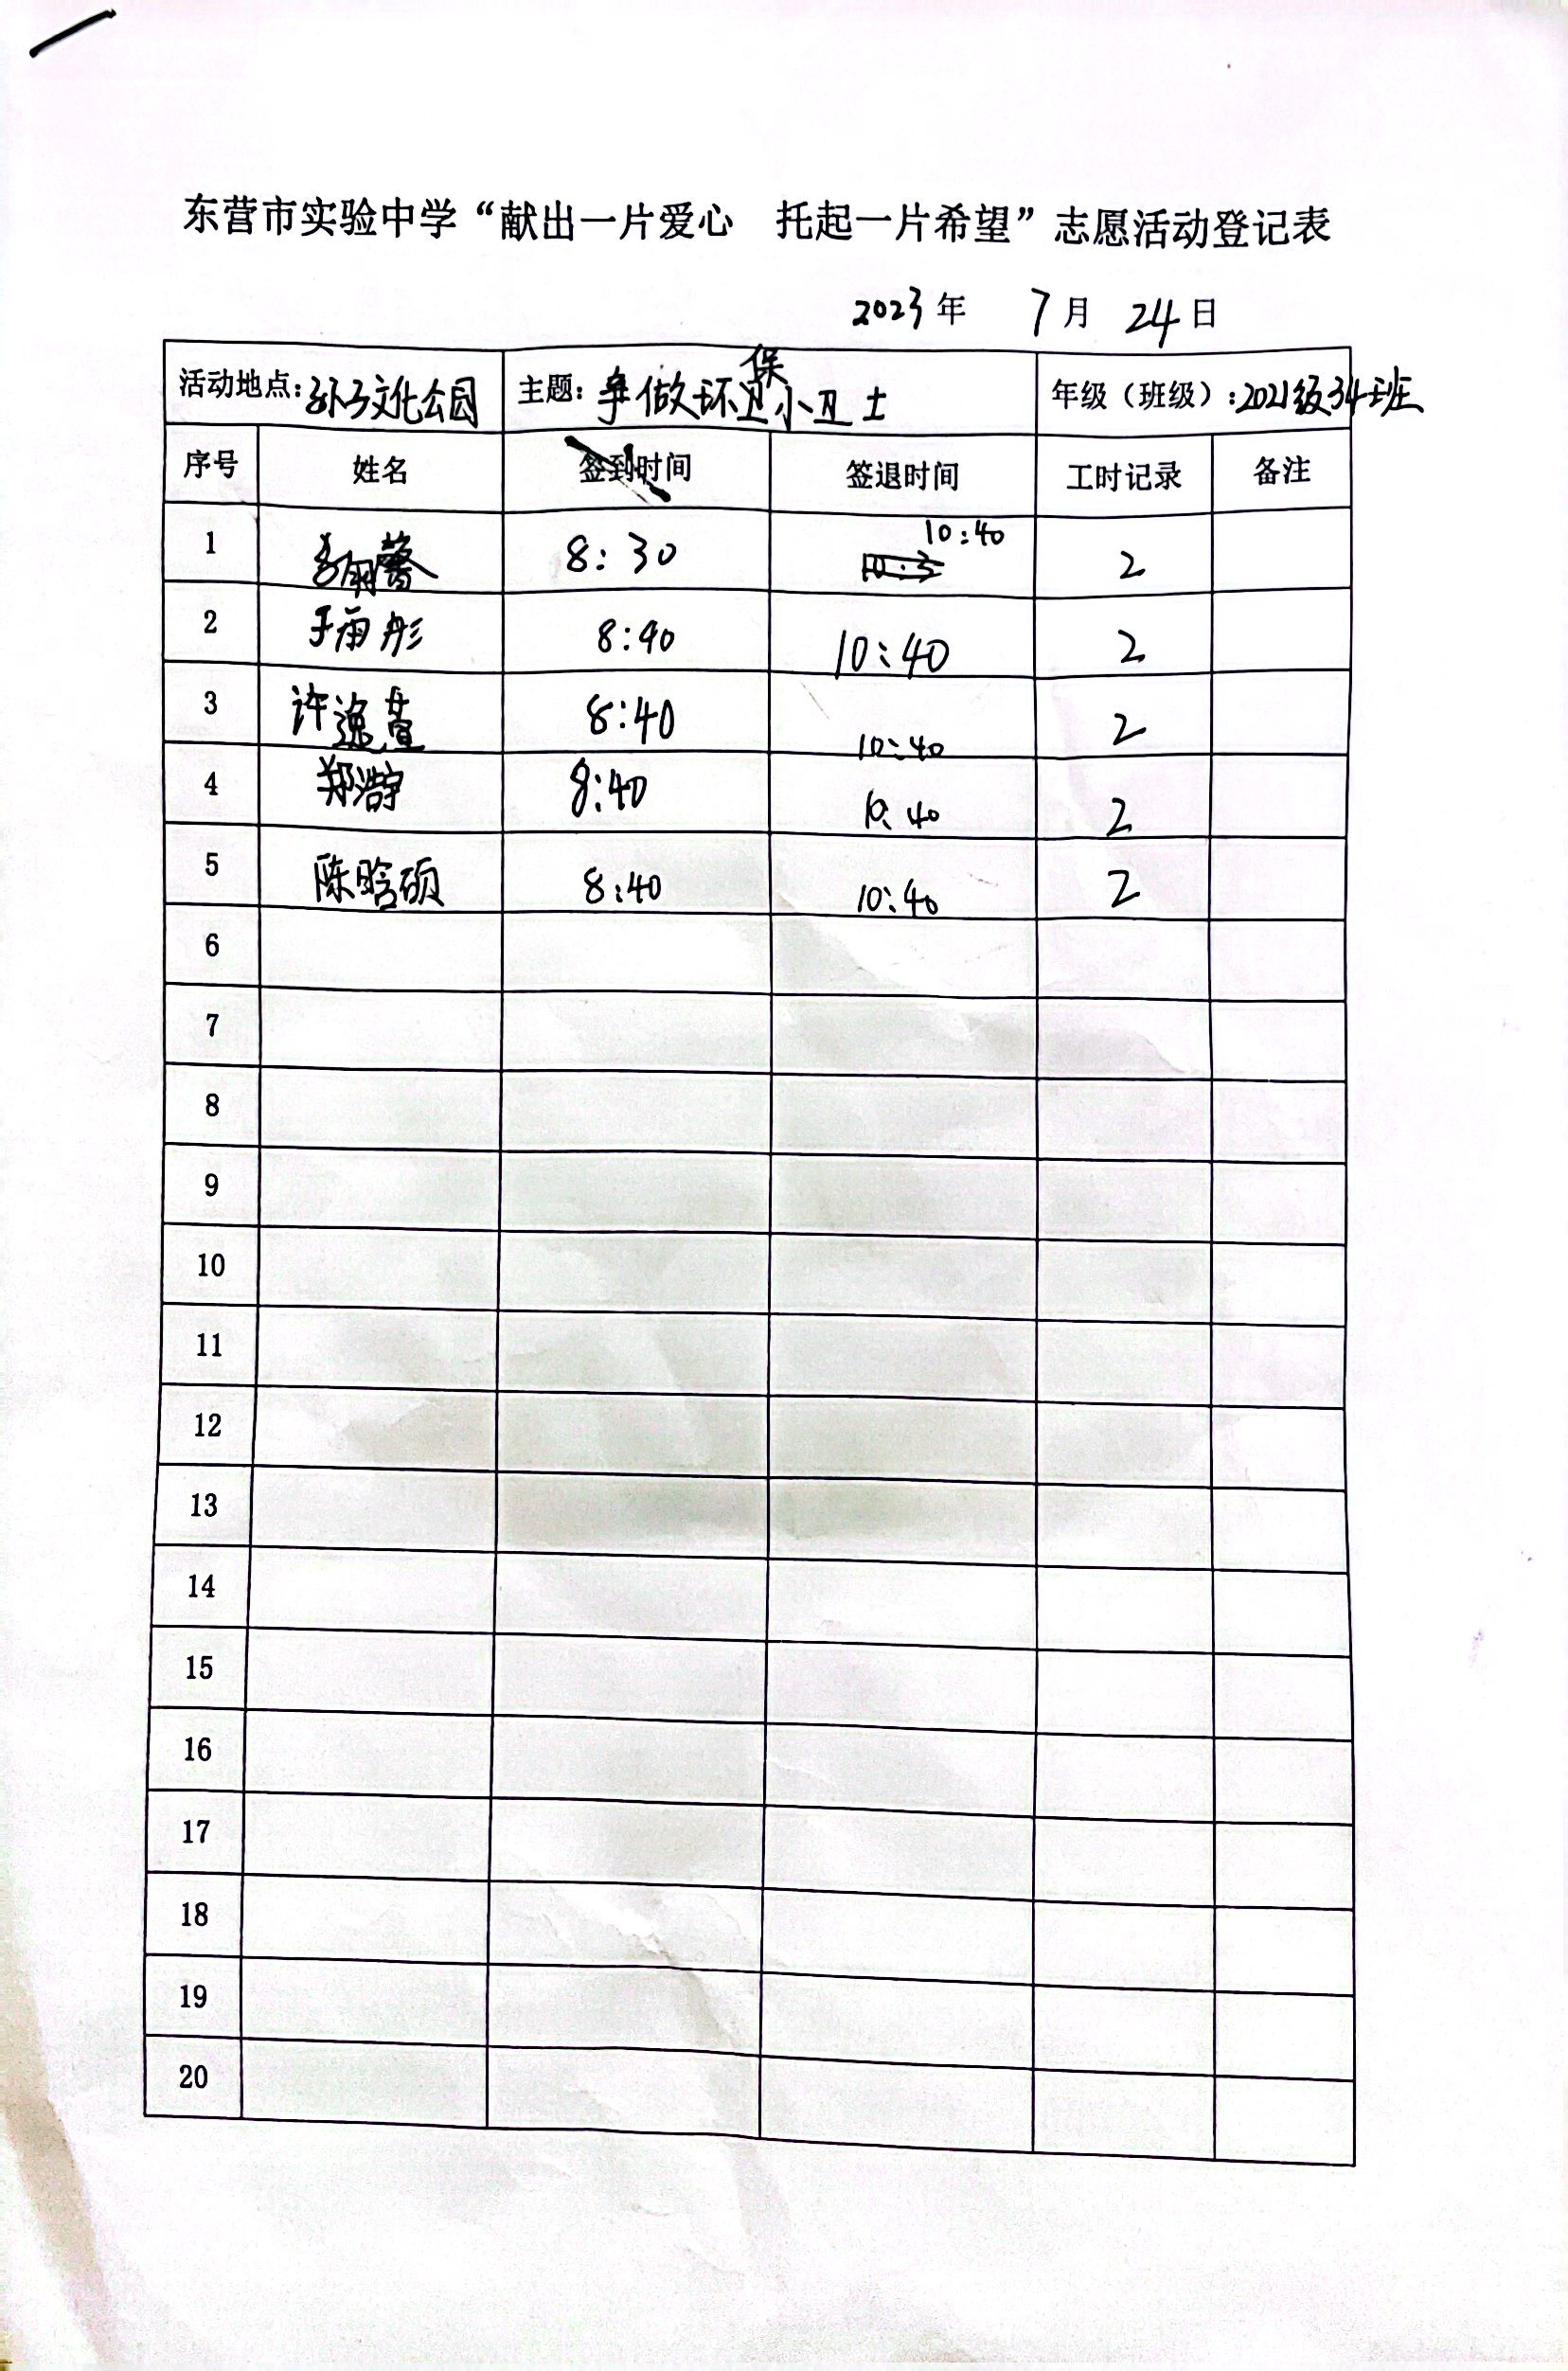 东营市实验中学“献出一片爱心 托起一片希望”志愿活动登记表
2023年 7月 24日
活动地点：孙子文化公园 主题：争做环保小卫士 年级（班级）：2021级34班
序号 姓名 签到时间 签退时间 工时记录 备注
1 8:30 10:40 2
2 于雨彤 8:40 10:40 2
3 许逸萱 8:40 10:40 2
4 郑浩宇 8:40 10:40 2
5 陈晗硕 8:40 10:40 2
6
7
8
9
10
11
12
13
14
15
16
17
18
19
20